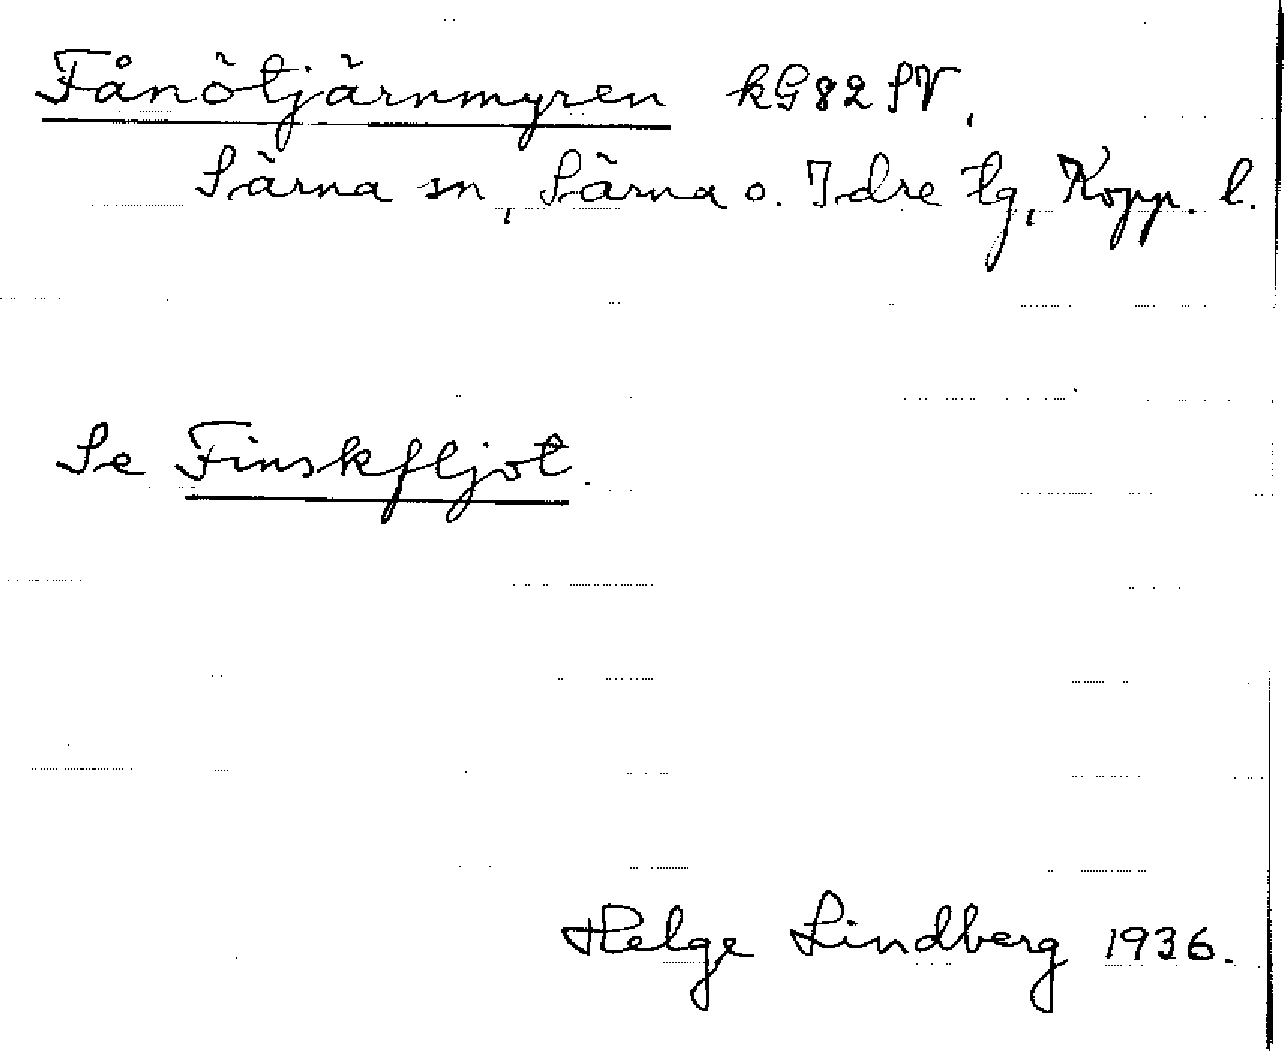 Fånötjärnmyren kG82 SV,
Särna sn, Särna o. Idre tg, Kopp. l.
Se Finskfljot.
Helge Lindberg 1936.